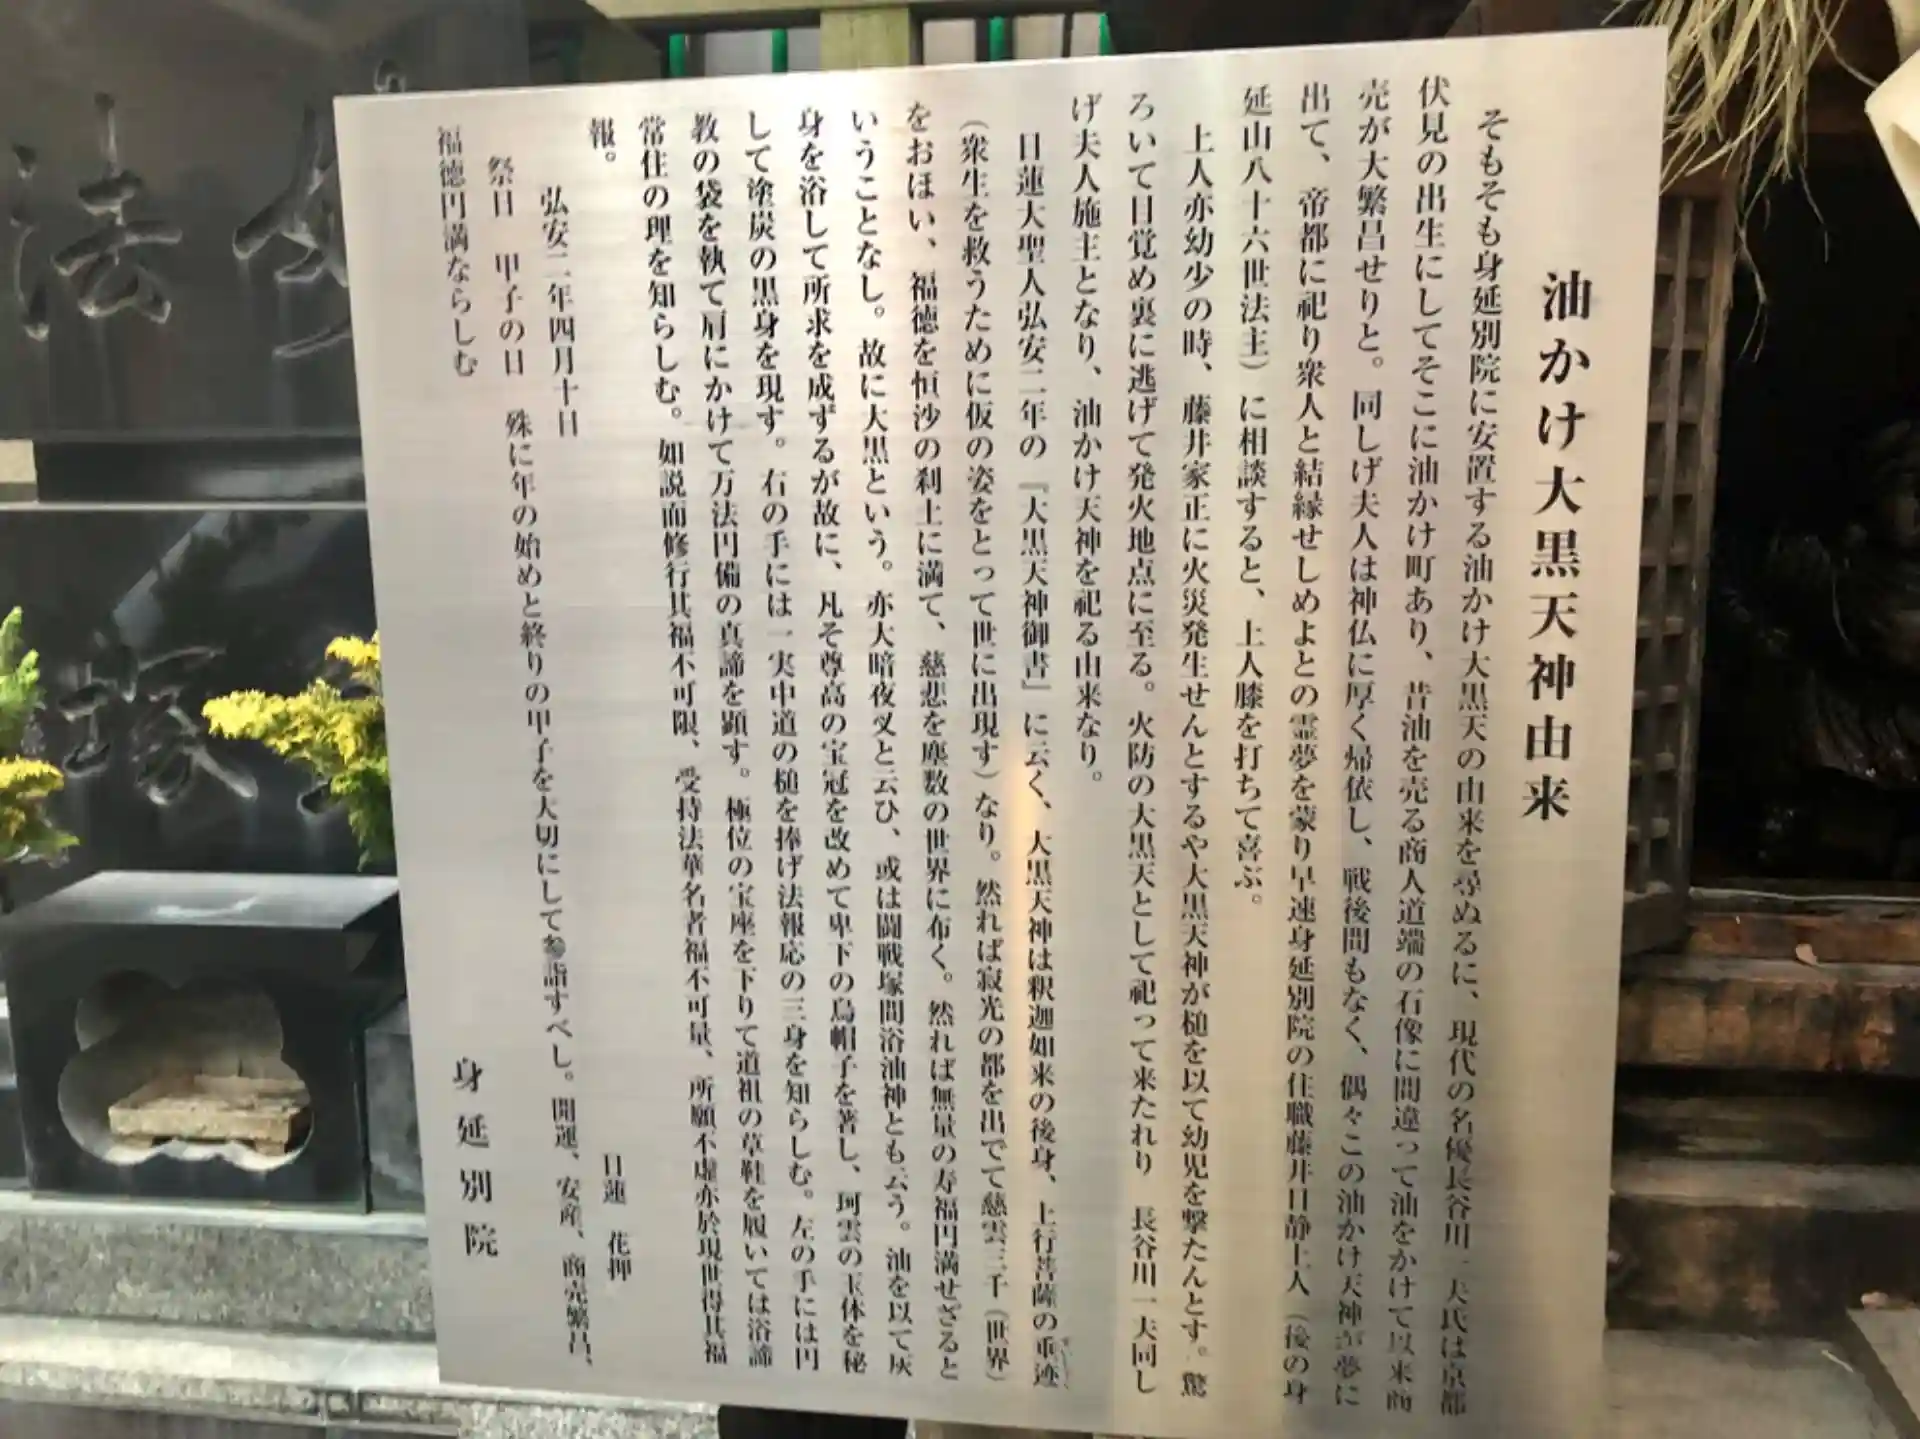 油かけ大黒天神由来
そもそも身延別院に安置する油かけ大黒天の由来を尋ぬるに、現代の名優長谷川一夫氏は京都
伏見の出生にしてそこに油かけ町あり、昔油を売る商人道端の石像に間違って油をかけて以来商
売が大繁昌せりと。同しげ夫人は神仏に厚く帰依し、戦後間もなく、偶々この油かけ天神が夢に
出て、帝都に祀り衆人と結縁せしめよとの霊夢を蒙り早速身延別院の住職藤井日静上人（後の身
延山八十六世法主）に相談すると、上人膝を打ちて喜ぶ。
上人亦幼少の時、藤井家正に火災発生せんとするや大黒天神が槌を以て幼児を撃たんとす。驚
ろいて目覚め裏に逃げて発火地点に至る。火防の大黒天として祀って来たれり　長谷川一夫同し
げ夫人施主となり、油かけ天神を祀る由来なり。
日蓮大聖人弘安二年の『大黒天神御書』に云く、大黒天神は釈迦如来の後身、上行菩薩の垂迹
（衆生を救うために仮の姿をとって世に出現す）なり。然れば寂光の都を出でて慈雲三千（世界）
をおほい、福徳を恒沙の刹土に満て、慈悲を塵数の世界に布く。然れば無量の寿福円満せざると
いうことなし。故に大黒という。亦大暗夜叉と云ひ、或は闘戦塚間浴油神とも云う。油を以て灰
身を浴して所求を成ずるが故に、凡そ尊高の宝冠を改めて卑下の烏帽子を著し、珂雲の玉体を秘
して塗炭の黒身を現す。右の手には一実中道の槌を捧げ法報応の三身を知らしむ。左の手には円
教の袋を執て肩にかけて万法円備の真諦を顕す。極位の宝座を下りて道祖の草鞋を履いては浴諦
常住の理を知らしむ。如説而修行其福不可限、受持法華名者福不可量、所願不虚亦於現世得其福
報。
弘安二年四月十日
日蓮　花押
祭日　甲子の日　殊に年の始めと終りの甲子を大切にして参詣すべし。開運、安産、商売繁昌、
福徳円満ならしむ
身延別院
法
塚